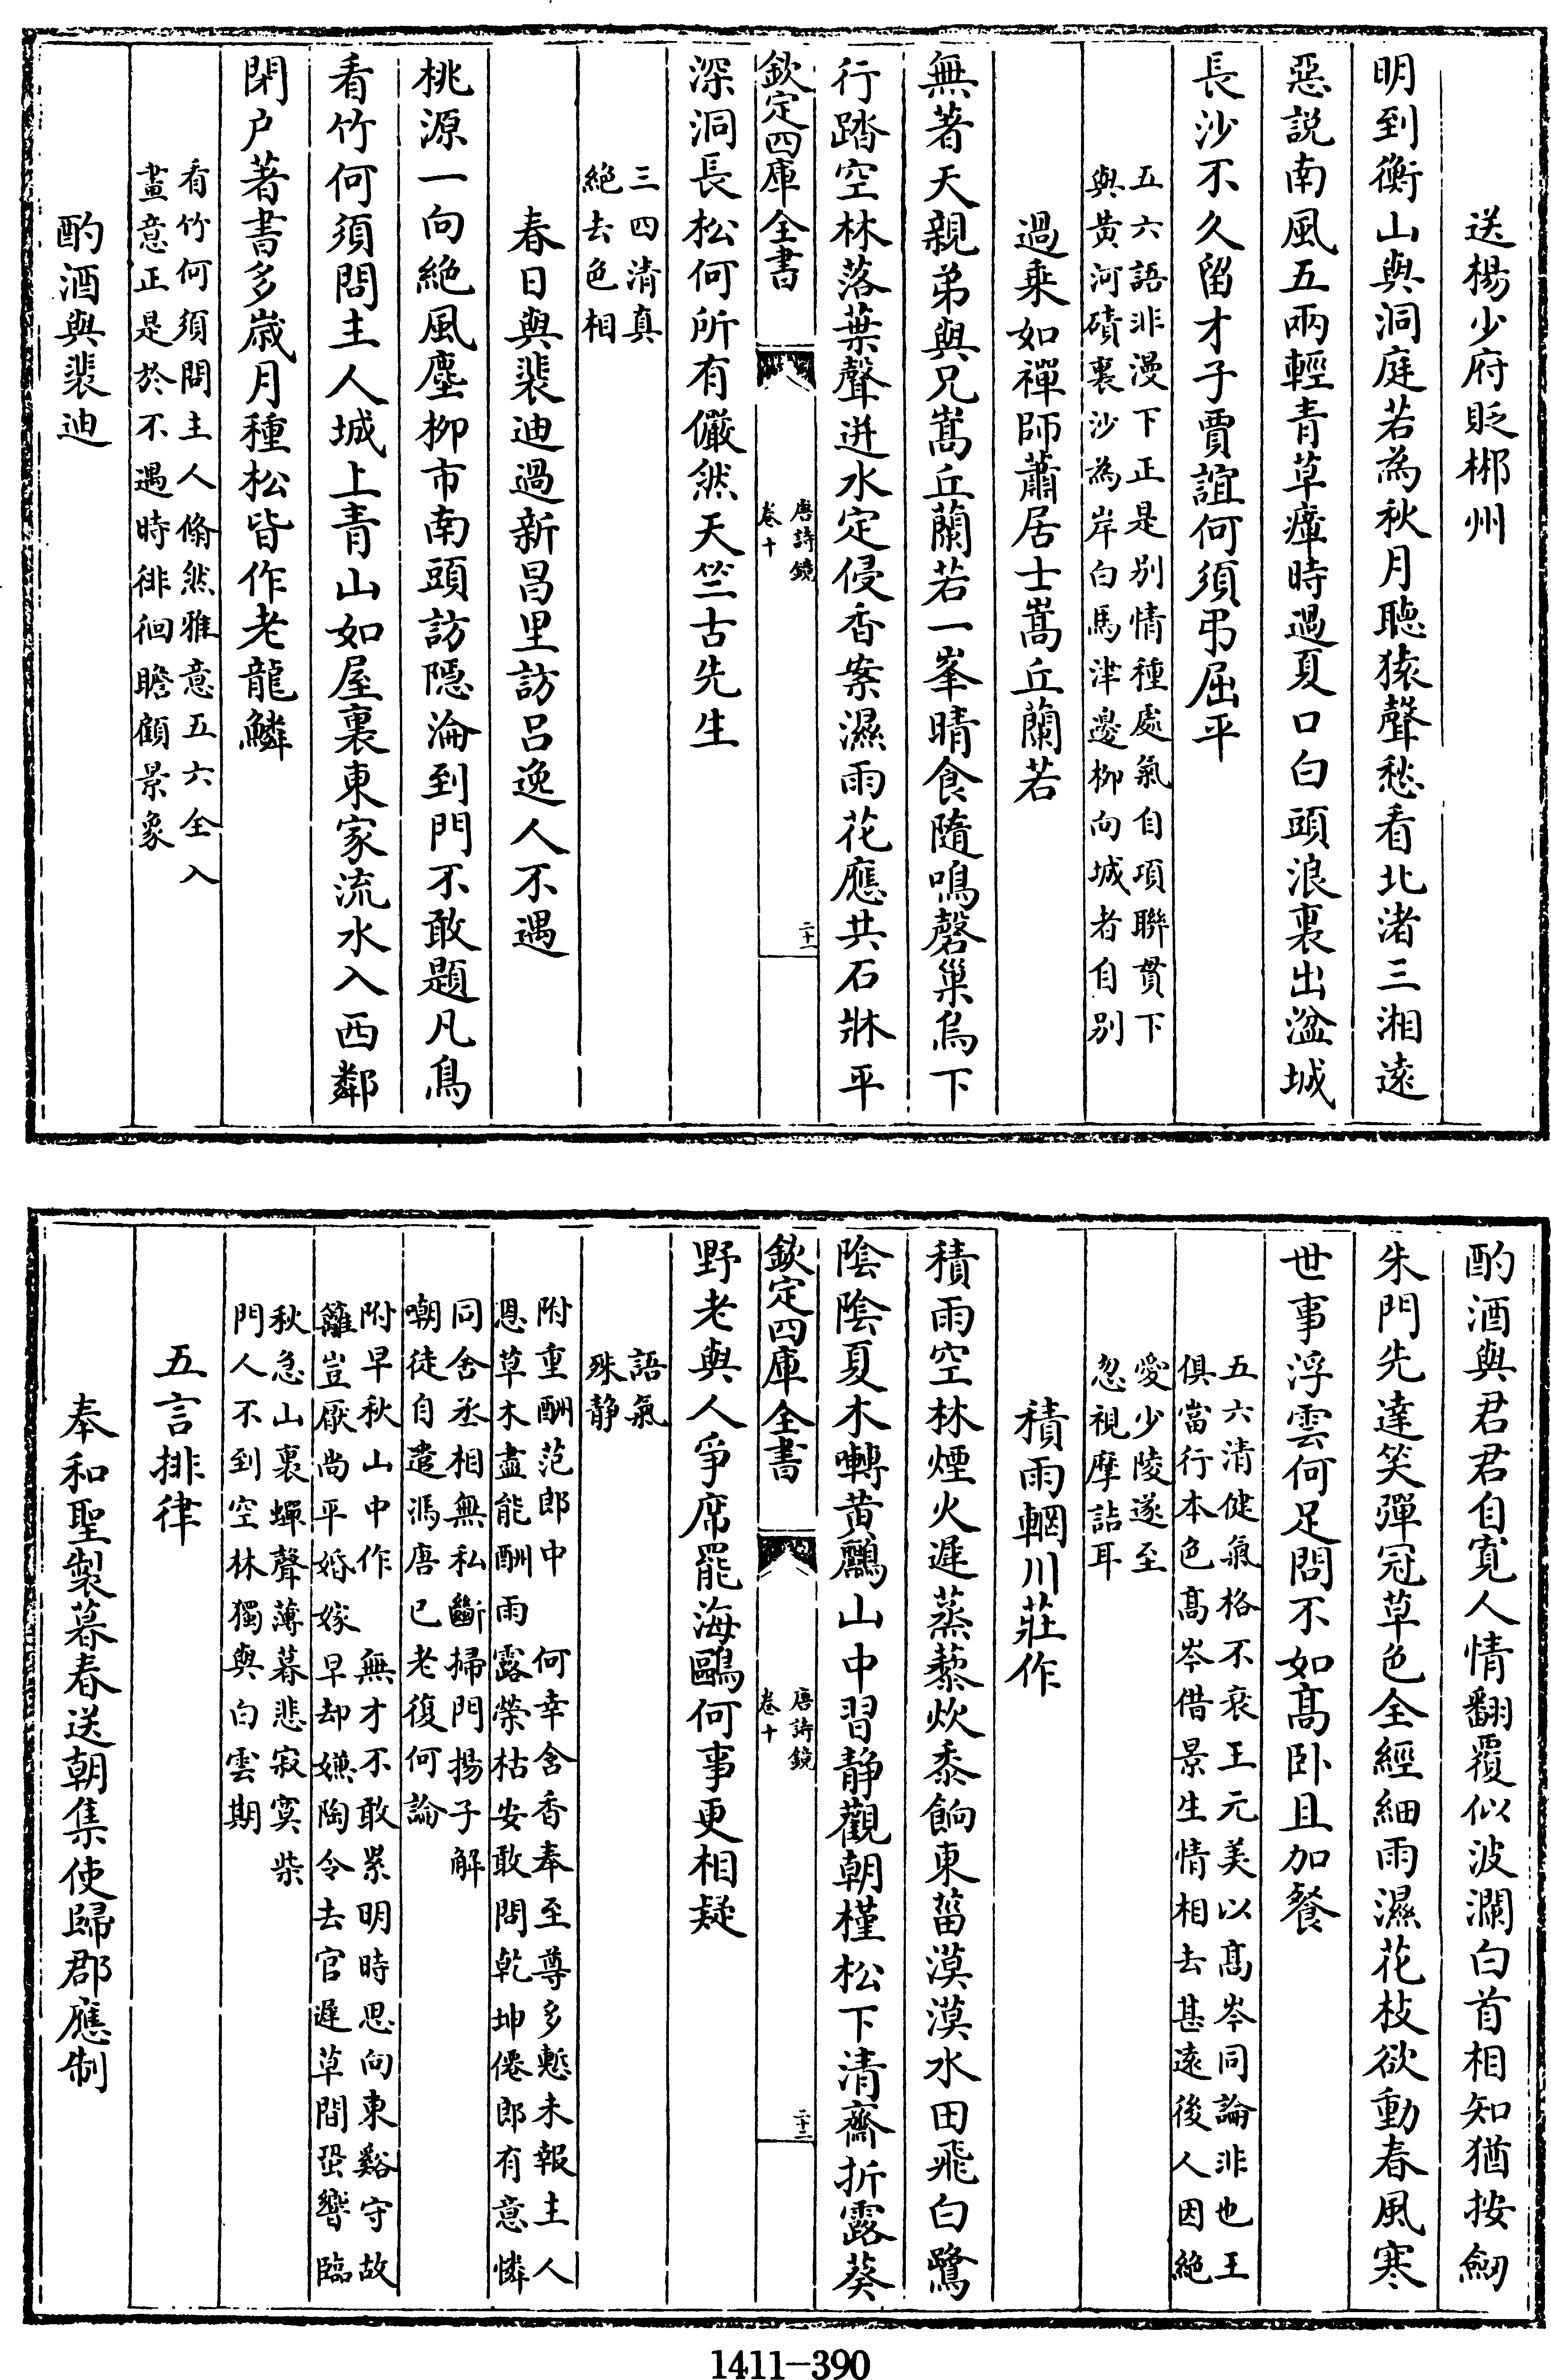 送楊少府貶郴州
明到衡山與洞庭若為秋月聽猿聲愁看北渚三湘遠
惡説南風五兩輕青草瘴時過夏口白頭浪裏出湓城
長沙不久留才子賈誼何須弔屈平
五六語非漫下正是别情種處氣自項聯貫下
與黄河磧裏沙為岸白馬津邊柳向城者自别
過乗如禪師蕭居士嵩丘蘭若
無著天親弟與兄嵩丘蘭若一峯晴食隨鳴磬巢烏下
行踏空林落葉聲迸水定侵香案濕雨花應共石牀平
欽定四庫全書
唐詩鏡
卷十
二十一
深洞長松何所有儼然天竺古先生
三四清真
絶去色相
春日與裴迪過新昌里訪吕逸人不遇
桃源一向絶風塵柳市南頭訪隠淪到門不敢題凡鳥
看竹何須問主人城上青山如屋裏東家流水入西鄰
閉户著書多歳月種松皆作老龍鱗
看竹何須問主人翛然雅意五六全入
畫意正是於不遇時徘徊瞻顧景象
酌酒與裴迪
酌酒與君君自寛人情翻覆似波瀾白首相知猶按劒
朱門先達笑彈冠草色全經細雨濕花枝欲動春風寒
世事浮雲何足問不如髙卧且加餐
五六清健氣格不衰王元美以髙岑同論非也王
俱當行本色髙岑借景生情相去甚遠後人因絶
愛少陵遂至
忽視摩詰耳
積雨輞川莊作
積雨空林煙火遲蒸藜炊黍餉東菑漠漠水田飛白鷺
陰陰夏木囀黄鸝山中習静觀朝槿松下清齋折露葵
欽定四庫全書
唐詩鏡
卷十
二十二
野老與人爭席罷海鷗何事更相疑
語氣
殊静
附重酬范郎中　何幸含香奉至尊多慙未報主人
恩草木盡能酬雨露榮枯安敢問乾坤僊郎有意憐
同舍丞相無私斷掃門揚子解
嘲徒自遣馮唐已老復何論
附早秋山中作　無才不敢累明時思向東谿守故
籬豈厭尚平婚嫁早却嫌陶令去官遲草間蛩響臨
秋急山裏蟬聲薄暮悲寂寞柴
門人不到空林獨與白雲期
五言排律
奉和聖製暮春送朝集使歸郡應制
1411—390